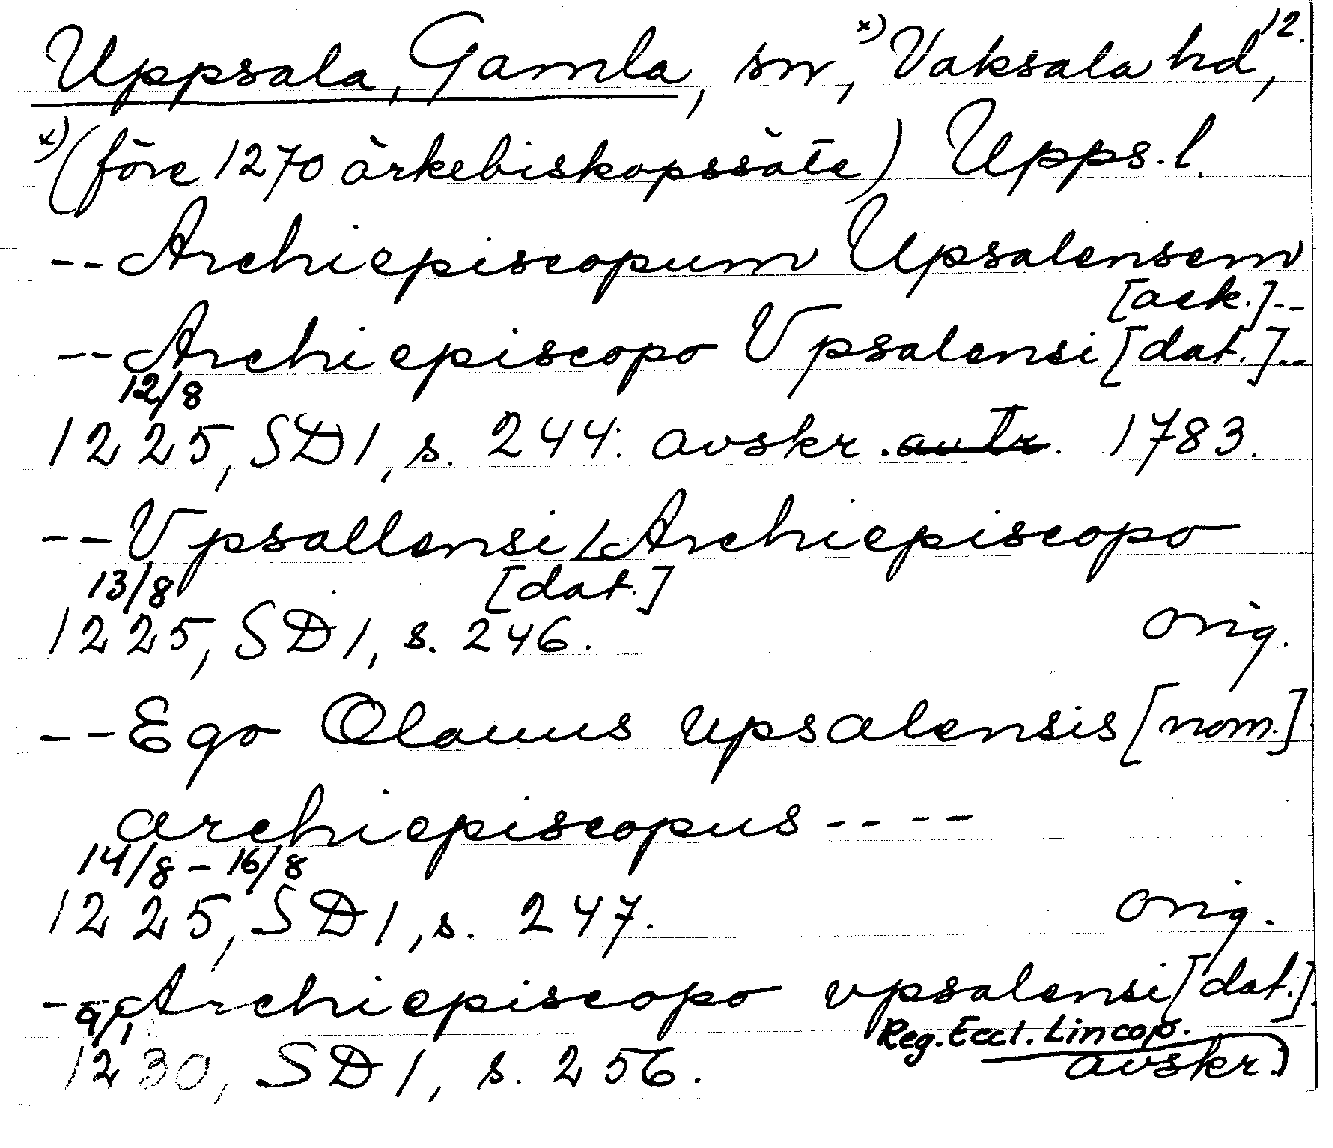 Uppsala, Gamla, sn, x) Vaksala hd, 12.
x) (före 1270 ärkebiskopssäte) Upps. l.
-- Archiepiscopum Upsalensem
[ack.]--
-- Archiepiscopo Vpsalensi [dat.]--
12/8
1225, SD 1, s. 244. avskr. avtr. 1783.
-- Vpsallensi / Archiepiscopo
13/8 [dat.]
1225, SD 1, s. 246. orig.
-- Ego Olauus upsalensis [nom.]
archiepiscopus ----
14/8 - 16/8
1225, SD 1, s. 247. orig.
-- Archiepiscopo vpsalensi [dat.]
9/1 Reg. Eccl. Lincop.
1230, SD 1, s. 256. avskr.)